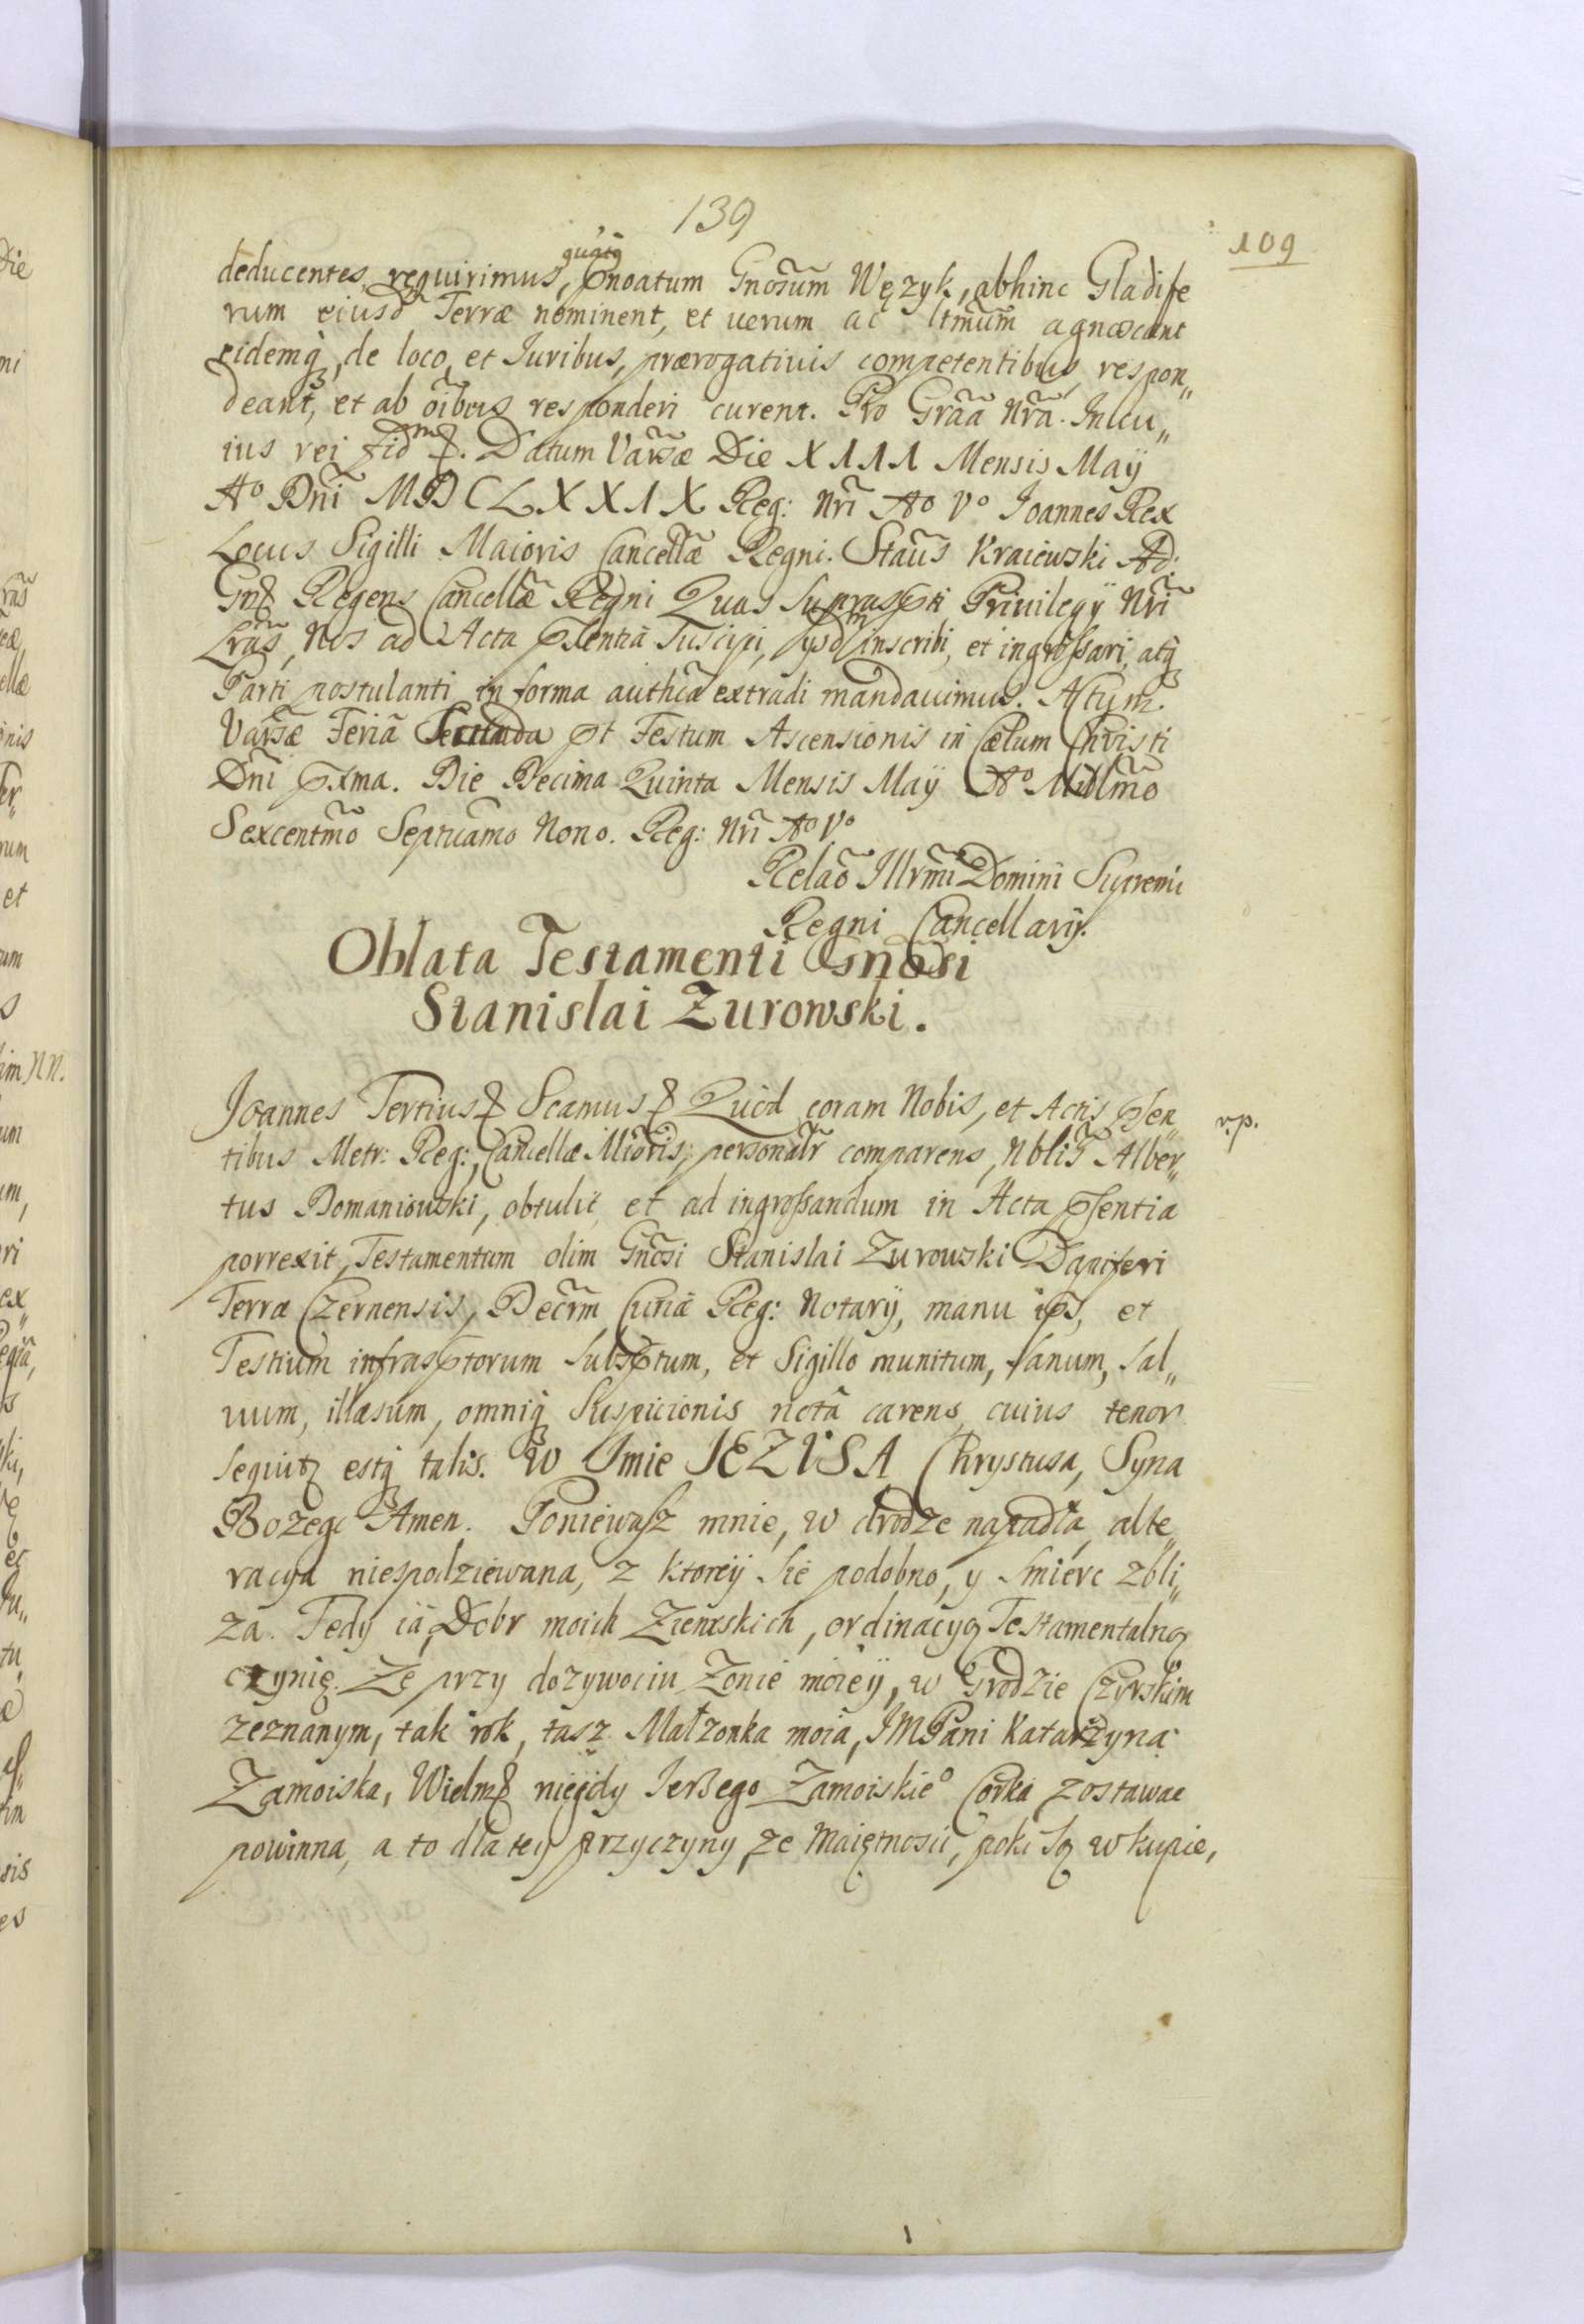 139
109
quatq̃
deducentes, requirimus, p̃noatum Gnosum̃ Węzyk, abhinc Gladife
rum eiusd̃ Terræ nominent, et uerum ac ltm̃um agnoscant
eidemq́, de loco, et Iuribus, prærogatiuis competentibus, respon„
deant, et ab oĩbus responderi curent. Pro Grãa Nrã. In cu„
ius rei fidm̃ &. Datum Varsæ̃ Die XIII Mensis Maÿ
Ao Dnĩ MDCLXXIX Reg: Nrĩ Ao Vo Ioannes Rex
Locus Sigilli Maioris Cancellæ̃ Regni. Staũs Kraiewski Ad:
Gn& Regens Cancellæ̃ Regni Quas Suprasp̃ti Priuilegÿ Nrĩ
Lrãs, Nos ad Acta p̃sentiã Suscipi, ÿsdm̃ inscribi, et ingrossari, atq́
Parti postulanti in forma authĩca extradi mandauimus. Actum
Varsæ̃ Feriã Secunda p̃t Festum Ascensionis in Cælum Christi
Dnĩ p̃xma. Die Decima Quinta Mensis Maÿ Ao Millm̃o
Sexcentm̃o Septuamo Nono. Reg: Nrĩ Ao Vo
Relaõ Illrm̃i Domini Supremi
Regni Cancellarÿ.
Oblata Testamenti Gnõsi
Stanislai Zurowski.
Joannes Tertius & Scamus & Quòd coram Nobis, et Actis p̃sen„
v.p.
tibus Metr: Reg: Cancellæ Miõris, personalr̃ comparens, Nblis̃ Alber„
tus Domaniowski, obtulit, et ad ingrossandum in Acta p̃sentia
porrexit, Testamentum olim Gnõsi Stanislai Zurowski Dapiferi
Terræ Czernensis, Decrm̃ Curiæ Reg: Notarÿ, manu ip̃s, et
Testium infrasp̃torum subsp̃tum, et Sigillo munitum, sanum, sal„
uum, illæsum, omniq́ Suspicionis notâ carens, cuius tenor
sequitʒ estq́ talis. W Imie JEZUSA Chrystusa, Syna
Bożego Amen. Poniewasz mnie, w drodze napadła, alte„
racya niespodziewana, z ktoreÿ sie podobno, y smierc zbli„
za. Tedy iá, Dobr moich Ziemskich, ordinacyą Testamentalną
czynię. Ze przy dozywociu Zonie moieÿ, w Grodzie Czyrskim
zeznanym, tak rok, tasz Małzonka moia, JMPani Katarzyna
Zamoiska, Wielm& niegdy Ierzego Zamoiskieo Corka zostawac
powinna, a to dla tey przyczyny, ze Maiętnosci, poki są w kupie,